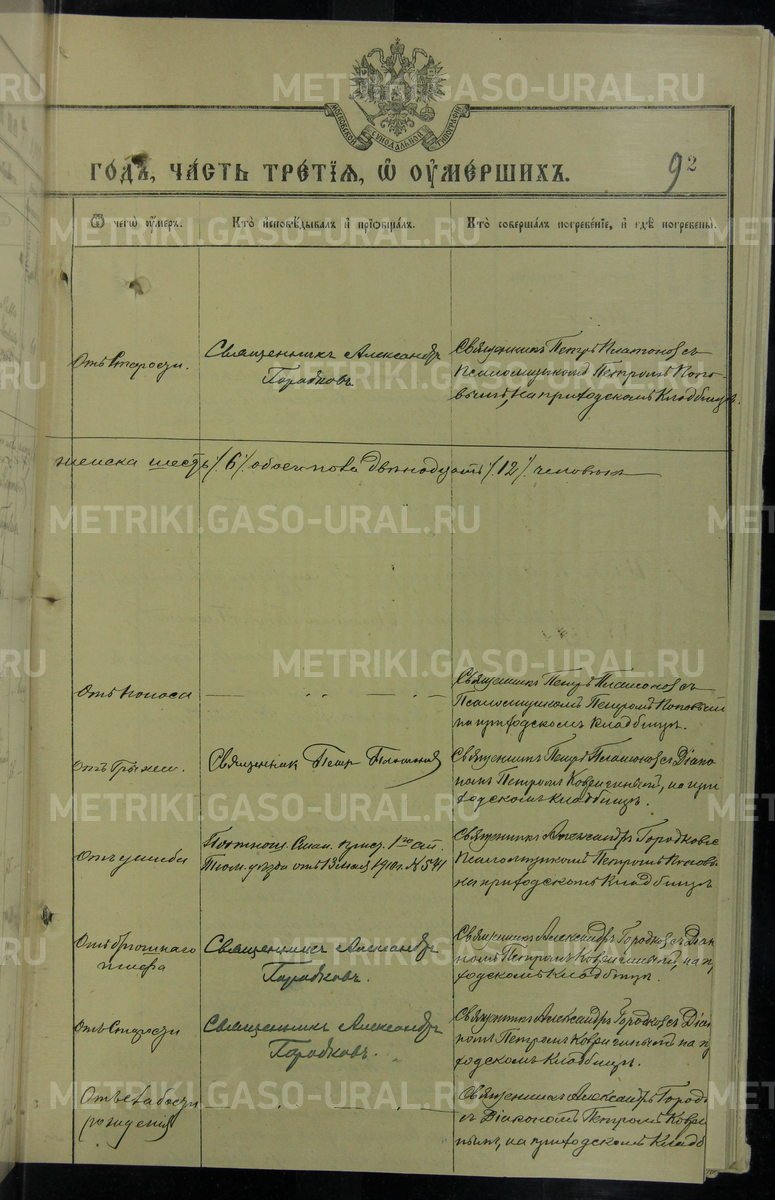 МОСКОВСКОЙ СѴНОДАЛЬНОЙ ТИПОГРАФІИ
ГОДЪ, ЧАСТЬ ТРЕТІЯ, Ѡ ОУМЕРШИХЪ.
92
Ѿ чегѡ оумеръ.
Кто исповѣдывалъ и пріобщалъ.
Кто совершалъ погребеніе, и гдѣ погребены.
Отъ старости.
Священникъ Александръ
Городковъ
Священникъ Петръ Платоновъ съ
Псаломщикомъ Петромъ Попо-
вымъ, на приходскомъ кладбищѣ.
женска шесть /6/ обоего пола двѣнадцать /12/ человѣкъ
Отъ поноса
Священникъ Петръ Платоновъ съ
Псаломщикомъ Петромъ Поповым
на приходскомъ кладбищѣ.
Отъ грыжи.
Священник Петр Платонов
Священникъ Петръ Платоновъ съ Діако
номъ Петромъ, на при
ходскомъ кладбищѣ.
Отъ ушиба
отъ 13 мая 1910 г. № 541
Священникъ Александръ Городковъ с
Псаломщикомъ Петромъ Поповы
на приходскомъ кладбищѣ
Отъ брюшнаго
тифа
Священникъ Александръ
Городковъ.
Священникъ Александръ Городковъ съ Діак
номъ Петромъ, на п
ходскомъ кладбищѣ.
Отъ старости
Священникъ Александръ
Городковъ.
Священникъ Александръ Городковъ съ Діак
номъ Петромъ на п
ходскомъ кладбищѣ.
Отъ слабости
рожденія
Священникъ Александръ Городк
съ Діакономъ Петромъ
нымъ, на приходскомъ кладб
METRIKI.GASO-URAL.RU